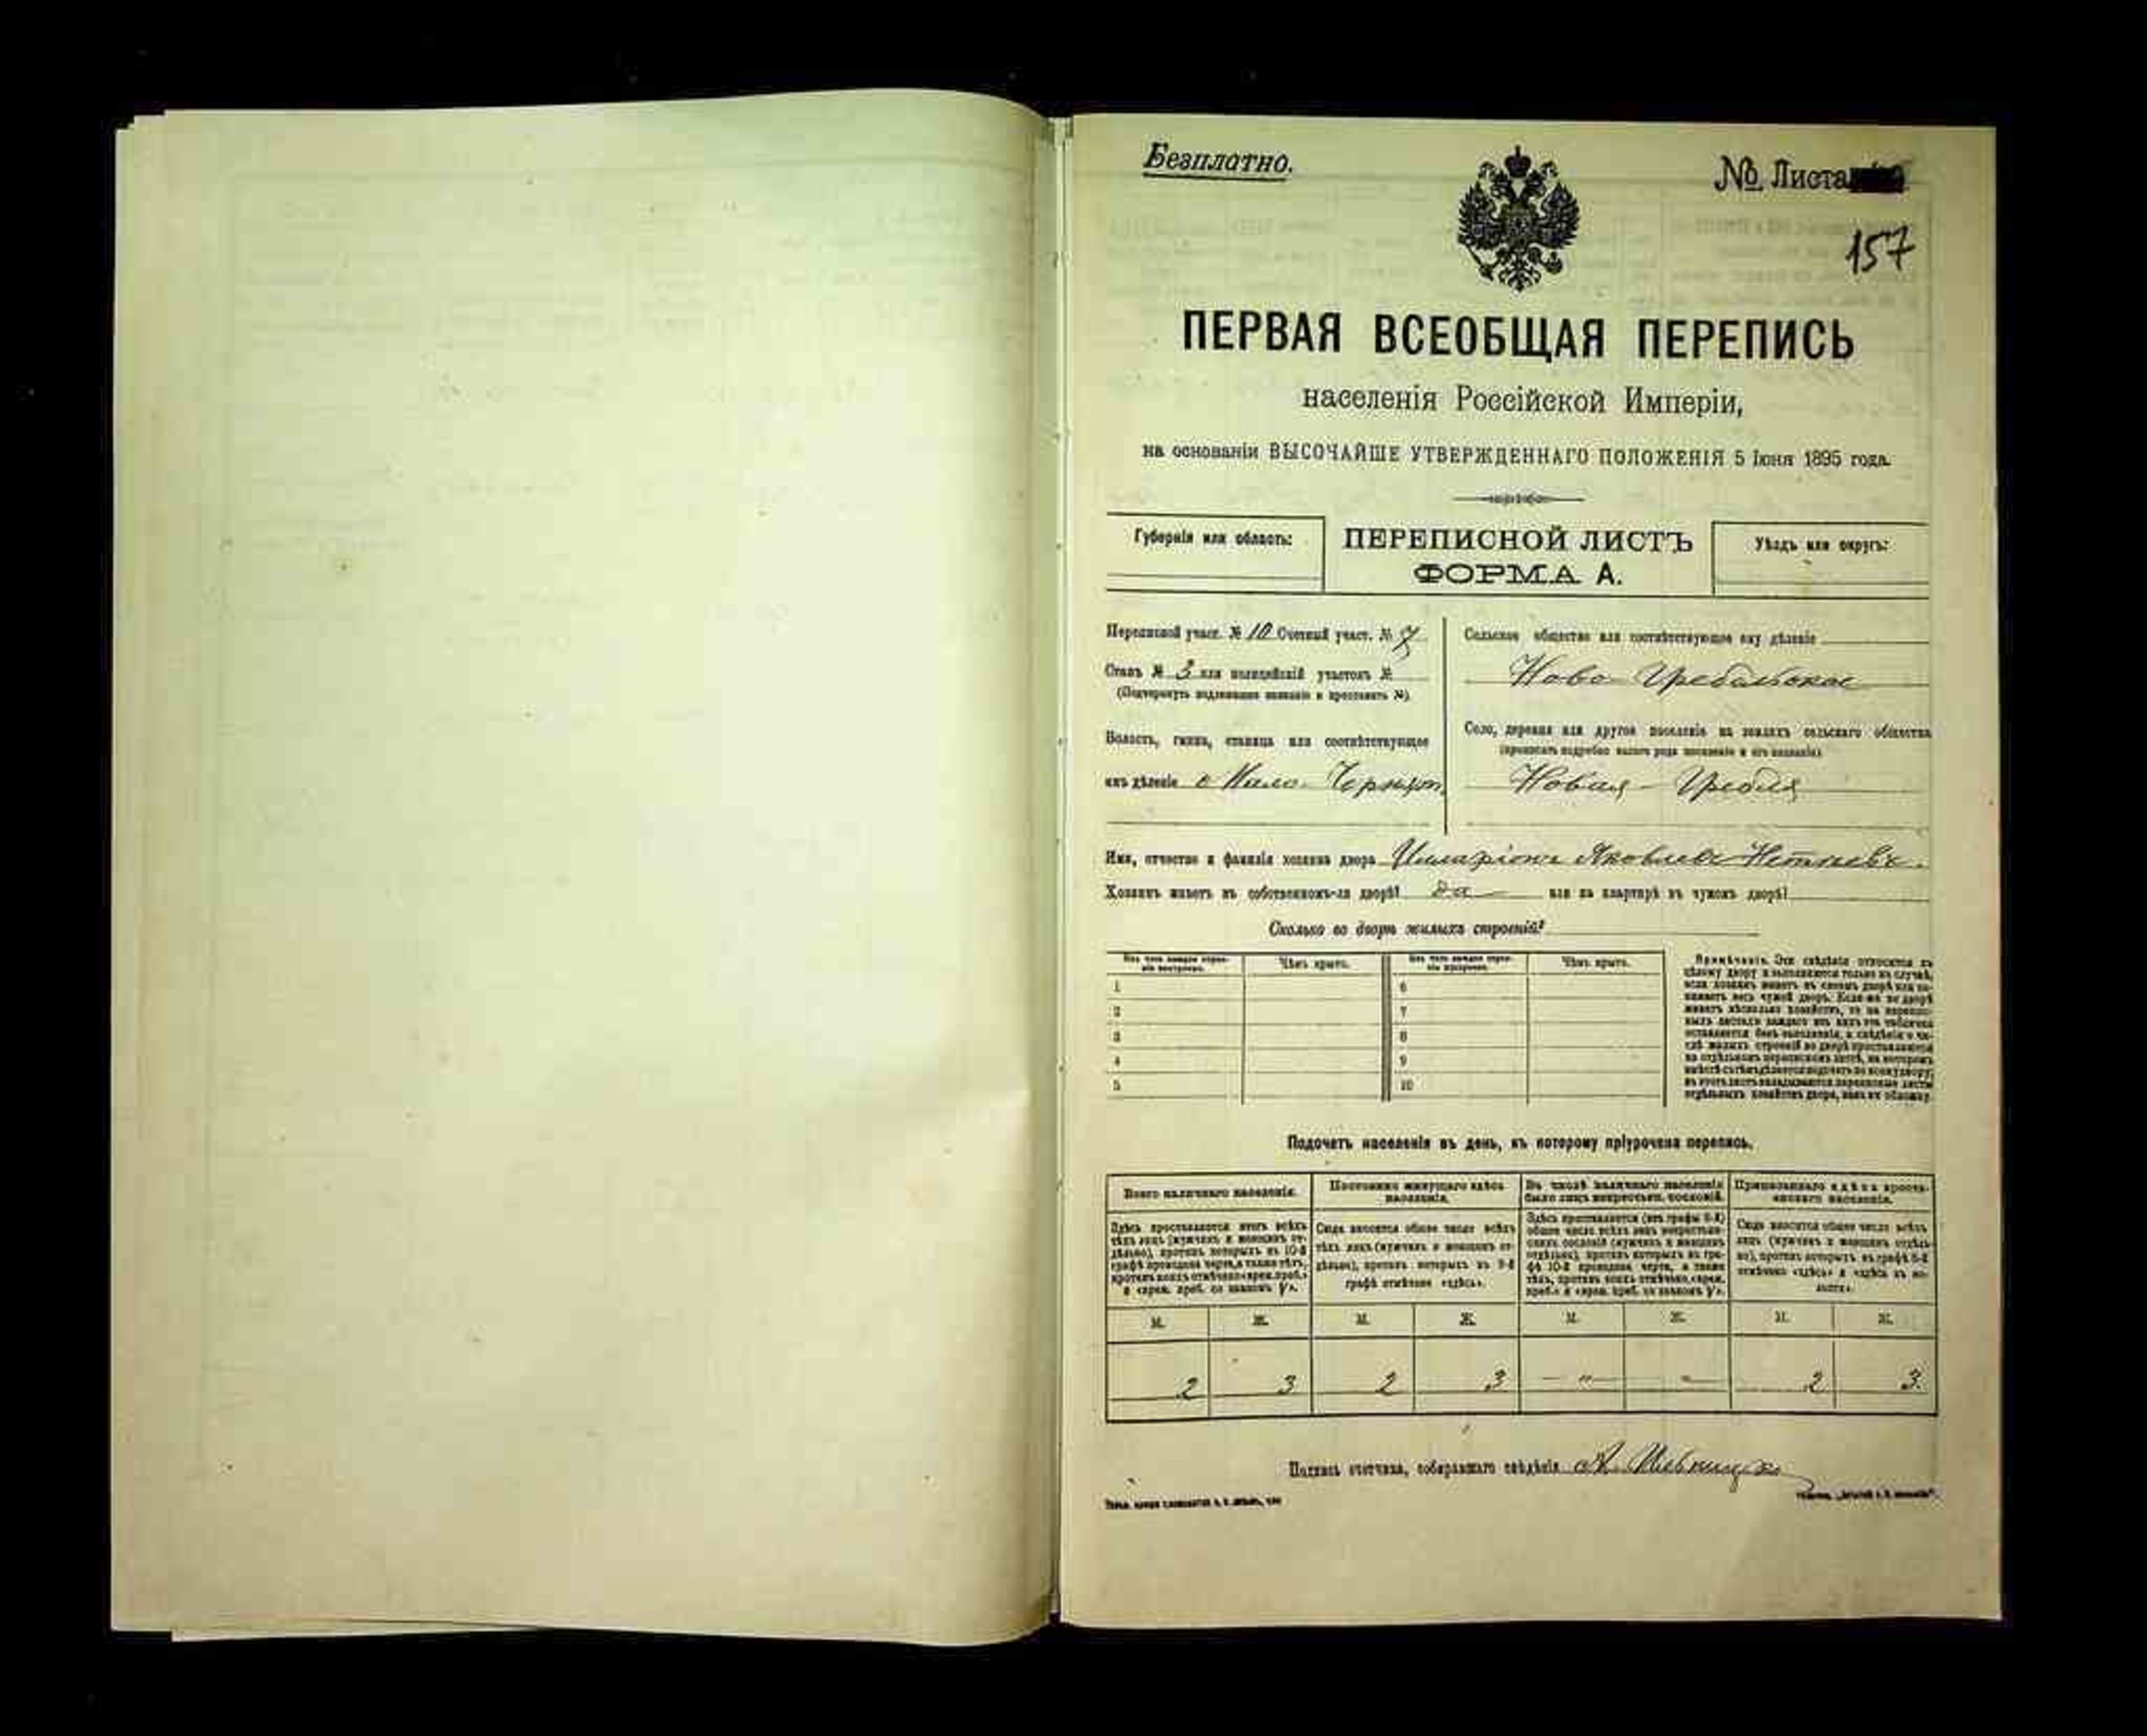 Безплатно.
№ Листа
157
ПЕРВАЯ ВСЕОБЩАЯ ПЕРЕПИСЬ
населенія Россійской Имперіи,
на основаніи ВЫСОЧАЙШЕ УТВЕРЖДЕННАГО ПОЛОЖЕНІЯ 5 Іюня 1895 года.
Губернія или область:
ПЕРЕПИСНОЙ ЛИСТЪ
ФОРМА А.
Уѣздъ или округъ:
Переписной участ. № 10 Счетный участ. № 7
Станъ № 3 или полицейскій участокъ №
(Подчеркнуть подлежащее названіе и проставить №).
Волость, гмина, станица или соотвѣтствующее
имъ дѣленіе с Мало-
Сельское общество или соотвѣтствующее ему дѣленіе
Ново-Гребельское
Село, деревня или другое поселеніе на земляхъ сельскаго общества
(прописать подробно какого рода поселеніе и его названіе).
Новая-Гребля
Имя, отчество и фамилія хозяина двора Илларіонъ Яковлевъ
Хозяинъ живетъ въ собственномъ-ли дворѣ? да или на квартирѣ въ чужомъ дворѣ?
Сколько во дворѣ жилыхъ строеній?
Изъ чего каждое строеніе построено.
Чѣмъ крыто.
Изъ чего каждое строеніе построено.
Чѣмъ крыто.
1 6
2 7
3 8
4 9
5 10
Примѣчаніе. Эти свѣдѣнія относятся къ
цѣлому двору и заполняются только въ случаѣ,
если хозяинъ живетъ въ своемъ дворѣ или за-
нимаетъ весь чужой дворъ. Если-же во дворѣ
живетъ нѣсколько хозяйствъ, то на перепис-
ныхъ листахъ каждаго изъ нихъ эта табличка
оставляется безъ заполненія, а свѣдѣнія о чи-
слѣ жилыхъ строеній во дворѣ проставляются
на отдѣльномъ переписномъ листѣ, на которомъ
вмѣстѣ съ тѣмъ дѣлается подсчетъ по всему двору;
въ этотъ листъ вкладываются переписные листы
отдѣльныхъ хозяйствъ двора, какъ въ обложку.
Подсчетъ населенія въ день, къ которому пріурочена перепись.
Всего наличнаго населенія.
Постоянно живущаго здѣсь населенія.
Въ числѣ наличнаго населенія было лицъ некрестьян. сословій.
Приписаннаго здѣсь крестьянскаго населенія.
Здѣсь проставляется итогъ всѣхъ
тѣхъ лицъ (мужчинъ и женщинъ от-
дѣльно), противъ которыхъ въ 10-й
графѣ проведена черта, а также тѣхъ,
противъ коихъ отмѣчено «врем. преб.»
и «врем. преб. со знакомъ
Сюда вносится общее число всѣхъ
тѣхъ лицъ (мужчинъ и женщинъ от-
дѣльно), противъ которыхъ въ 9-й
графѣ отмѣчено «здѣсь».
Здѣсь проставляется (изъ графы 6-й)
общее число всѣхъ лицъ некрестьян-
скихъ сословій (мужчинъ и женщинъ
отдѣльно), противъ которыхъ въ гра-
фѣ 10-й проведена черта, а также
тѣхъ, противъ коихъ отмѣчено «врем.
преб.» и «врем. преб. со знакомъ
Сюда вносится общее число всѣхъ
лицъ (мужчинъ и женщинъ отдѣль-
но), противъ которыхъ въ графѣ 8-й
отмѣчено «здѣсь» и «здѣсь въ во-
лости».
М. Ж. М. Ж. М. Ж. М. Ж.
2 3 2 3 - „ - „ 2 3.
Подпись счетчика, собиравшаго свѣдѣнія А.